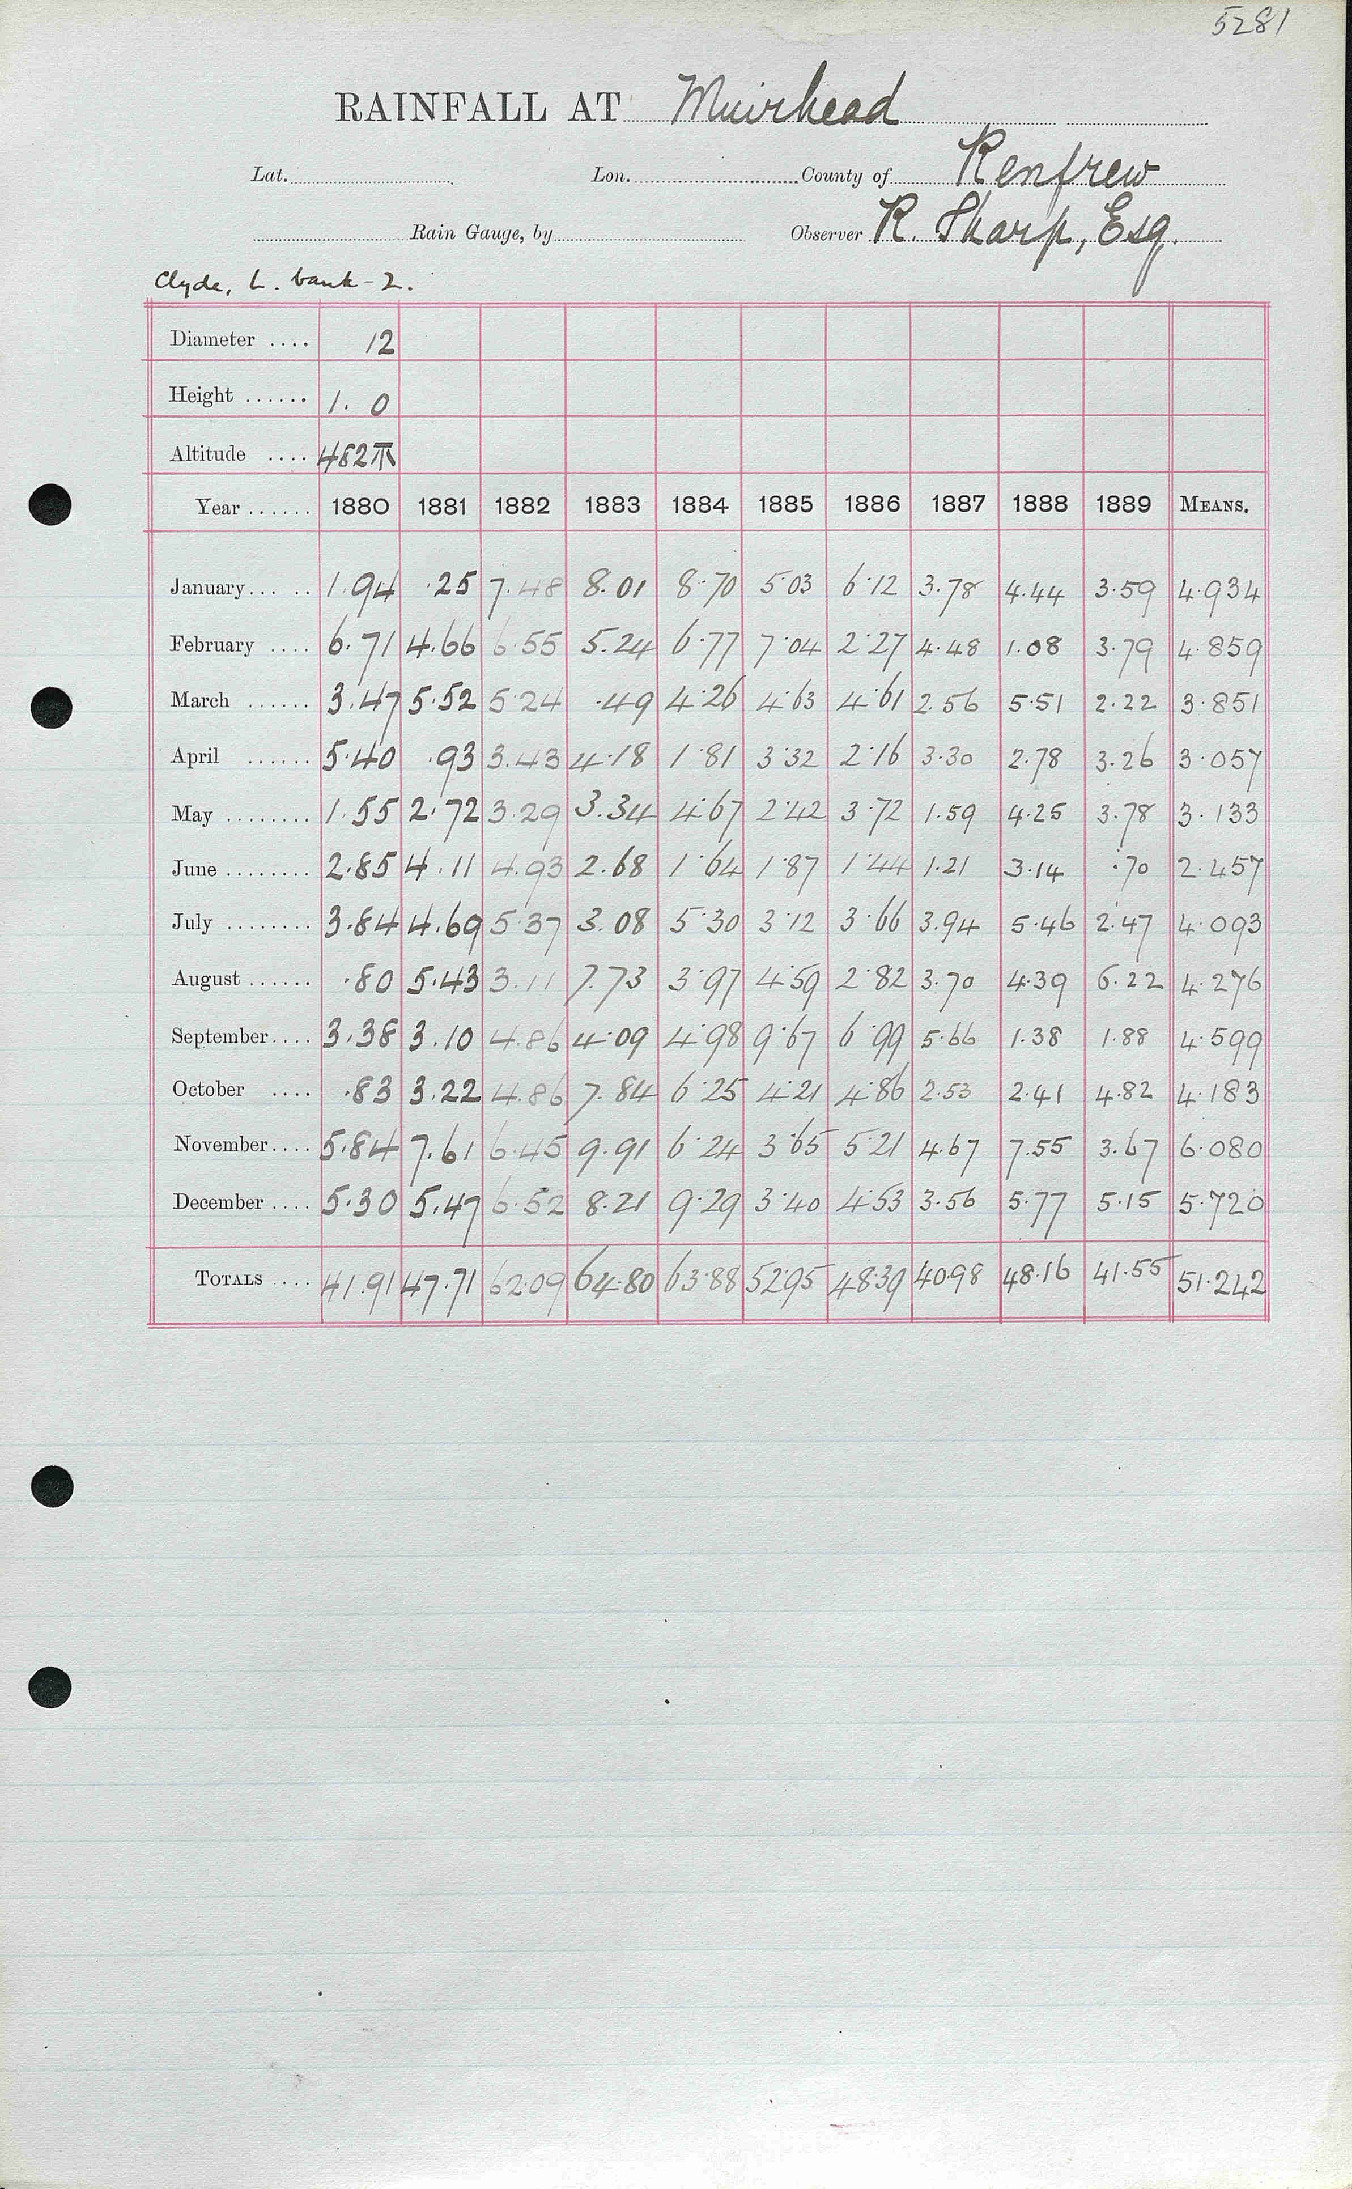 5281
RAINFALL AT Muirhead
Lat. Lon. County of Renfrew
Rain Gauge, by Observer R. Sharp, Esq.
Clyde, L. bank - 2.
Diameter .... 12
Height ...... 1. 0
Altitude .... 482
Year ...... 1880 1881 1882 1883 1884 1885 1886 1887 1888 1889 MEANS.
January ..... 1.94 .25 7.48 8.01 8.70 5.03 6.12 3.78 4.44 3.59 4.934
February .... 6.71 4.66 6.55 5.24 6.77 7.04 2.27 4.48 1.08 3.79 4.859
March ...... 3.47 5.52 5.24 .49 4.26 4.63 4.61 2.56 5.51 2.22 3.851
April ...... 5.40 .93 3.43 4.18 1.81 3.32 2.16 3.30 2.78 3.26 3.057
May ........ 1.55 2.72 3.29 3.34 4.67 2.42 3.72 1.59 4.25 3.78 3.133
June ........ 2.85 4.11 4.93 2.68 1.64 1.87 1.44 1.21 3.14 .70 2.457
July ........ 3.84 4.69 5.37 3.08 5.30 3.12 3.66 3.94 5.46 2.47 4.093
August ...... .80 5.43 3.11 7.73 3.97 4.59 2.82 3.70 4.39 6.22 4.276
September .... 3.38 3.10 4.86 4.09 4.98 9.67 6.99 5.66 1.38 1.88 4.599
October .... .83 3.22 4.86 7.84 6.25 4.21 4.86 2.53 2.41 4.82 4.183
November .... 5.84 7.61 6.45 9.91 6.24 3.65 5.21 4.67 7.55 3.67 6.080
December .... 5.30 5.47 6.52 8.21 9.29 3.40 4.53 3.56 5.77 5.15 5.720
TOTALS .... 41.91 47.71 62.09 64.80 63.88 52.95 48.39 40.98 48.16 41.55 51.242